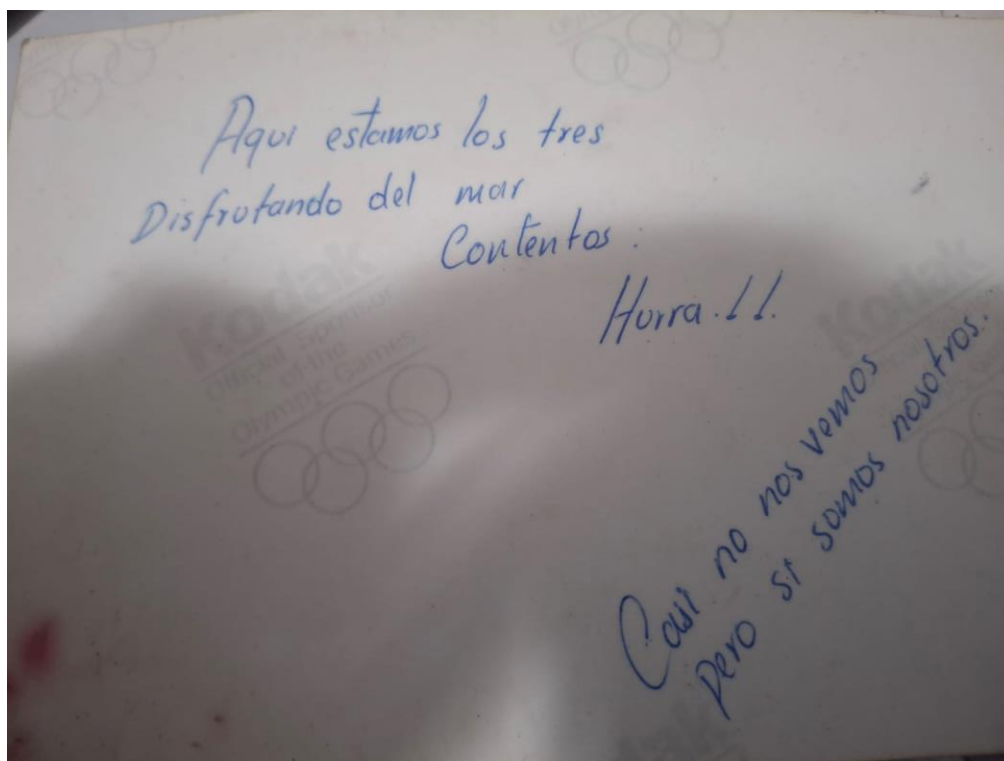 Aqui estamos los tres
Disfrutando del mar
Contentos.
Hurra.!!.
Casi no nos vemos
pero si somos nosotros.
Kodak
Official Sponsor
of the
Olympic Games
Kodak